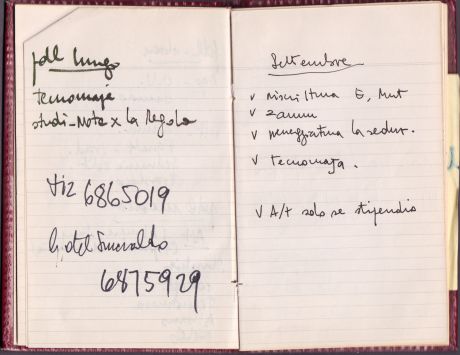 pdl lungo
tecnomaje
studi-note x la Regola
tiz 6865019
hotel Smeraldo
6875929
Settembre
v riscrittura G, Mut
v
v la sedur.
v tecnomaja.
v A/t solo se stipendio